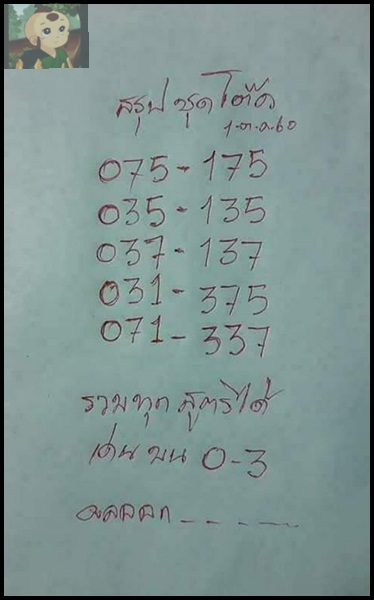 สรุป ชุด โต๊ด
1.ต.ค.60
075-175
035-135
037-137
031-375
071-337
รวมทุกสูตรได้
เด่น บน 0-3